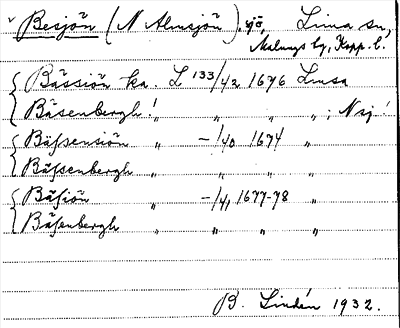 v Besjön (N Almsjön), sjö, Lima sn,
Malungs tg, Kopp. l.
Bässiön ka. L 133/42 1676 Limsa
Bäsenbergh! " " " " ; N sj!
Bäßensiön " -/40 1674 "
Bäßsenbergh " " " "
Bäsiön " -/41 1677-78 "
Bäsenbergh " " " "
B. Lindén 1932.